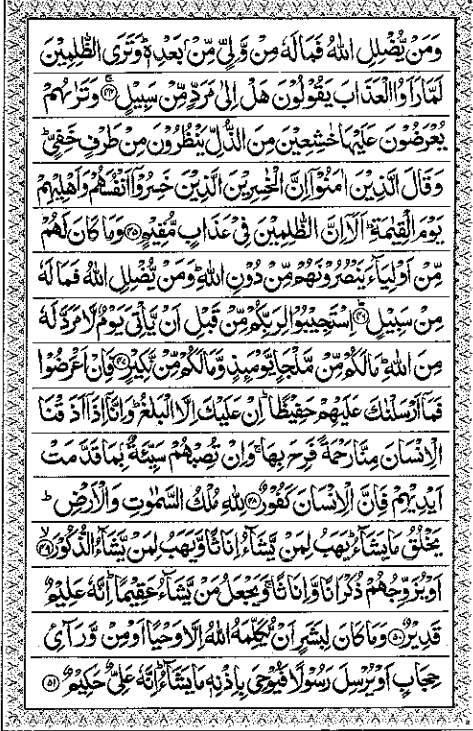 وَمَنْ يُّضْلِلِ اللّٰهُ فَمَا لَهٗ مِنْ وَّلِيٍّ مِّنْۢ بَعْدِهٖ ؕ وَتَرَى الظّٰلِمِيْنَ
لَمَّا رَاَوُا الْعَذَابَ يَقُوْلُوْنَ هَلْ اِلٰى مَرَدٍّ مِّنْ سَبِيْلٍ ۚ‏﴿۴۴﴾ وَتَرٰىهُمْ
يُعْرَضُوْنَ عَلَيْهَا خٰشِعِيْنَ مِنَ الذُّلِّ يَنْظُرُوْنَ مِنْ طَرْفٍ خَفِيٍّ ؕ
وَقَالَ الَّذِيْنَ اٰمَنُوْۤا اِنَّ الْخٰسِرِيْنَ الَّذِيْنَ خَسِرُوْۤا اَنْفُسَهُمْ وَاَهْلِيْهِمْ
يَوْمَ الْقِيٰمَةِ ؕ اَلَاۤ اِنَّ الظّٰلِمِيْنَ فِيْ عَذَابٍ مُّقِيْمٍ ﴿۴۵﴾ وَمَا كَانَ لَهُمْ
مِّنْ اَوْلِيَآءَ يَنْصُرُوْنَهُمْ مِّنْ دُوْنِ اللّٰهِ ؕ وَمَنْ يُّضْلِلِ اللّٰهُ فَمَا لَهٗ
مِنْ سَبِيْلٍ ؕ﴿۴۶﴾ اِسْتَجِيْبُوْا لِرَبِّكُمْ مِّنْ قَبْلِ اَنْ يَّاْتِيَ يَوْمٌ لَّا مَرَدَّ لَهٗ
مِنَ اللّٰهِ ؕ مَا لَكُمْ مِّنْ مَّلْجَاٍ يَّوْمَئِذٍ وَّمَا لَكُمْ مِّنْ نَّكِيْرٍ ﴿۴۷﴾ فَاِنْ اَعْرَضُوْا
فَمَاۤ اَرْسَلْنٰكَ عَلَيْهِمْ حَفِيْظًا ؕ اِنْ عَلَيْكَ اِلَّا الْبَلٰغُ ؕ وَاِنَّاۤ اِذَاۤ اَذَقْنَا
الْاِنْسَانَ مِنَّا رَحْمَةً فَرِحَ بِهَا ۚ وَاِنْ تُصِبْهُمْ سَيِّئَةٌۢ بِمَا قَدَّمَتْ
اَيْدِيْهِمْ فَاِنَّ الْاِنْسَانَ كَفُوْرٌ ﴿۴۸﴾ لِلّٰهِ مُلْكُ السَّمٰوٰتِ وَالْاَرْضِ ؕ
يَخْلُقُ مَا يَشَآءُ ؕ يَهَبُ لِمَنْ يَّشَآءُ اِنَاثًا وَّيَهَبُ لِمَنْ يَّشَآءُ الذُّكُوْرَ ۙ﴿۴۹﴾
اَوْ يُزَوِّجُهُمْ ذُكْرَانًا وَّاِنَاثًا ۚ وَيَجْعَلُ مَنْ يَّشَآءُ عَقِيْمًا ؕ اِنَّهٗ عَلِيْمٌ
قَدِيْرٌ ﴿۵۰﴾ وَمَا كَانَ لِبَشَرٍ اَنْ يُّكَلِّمَهُ اللّٰهُ اِلَّا وَحْيًا اَوْ مِنْ وَّرَآئِ
حِجَابٍ اَوْ يُرْسِلَ رَسُوْلًا فَيُوْحِيَ بِاِذْنِهٖ مَا يَشَآءُ ؕ اِنَّهٗ عَلِيٌّ حَكِيْمٌ ﴿۵۱﴾